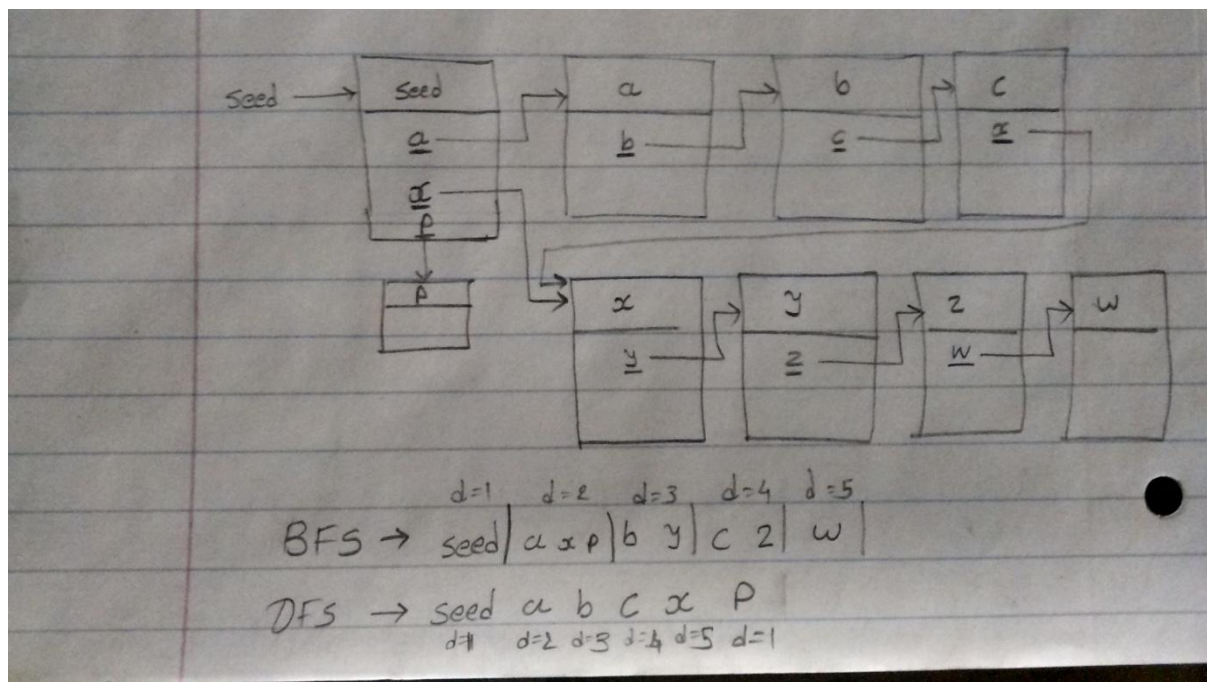 seed → seed a b c
a b c x
x
p
p x y z w
y z w
d=1 d=2 d=3 d=4 d=5
BFS → seed | a x p | b y | c z | w |
DFS → seed a b c x p
d=1 d=2 d=3 d=4 d=5 d=1